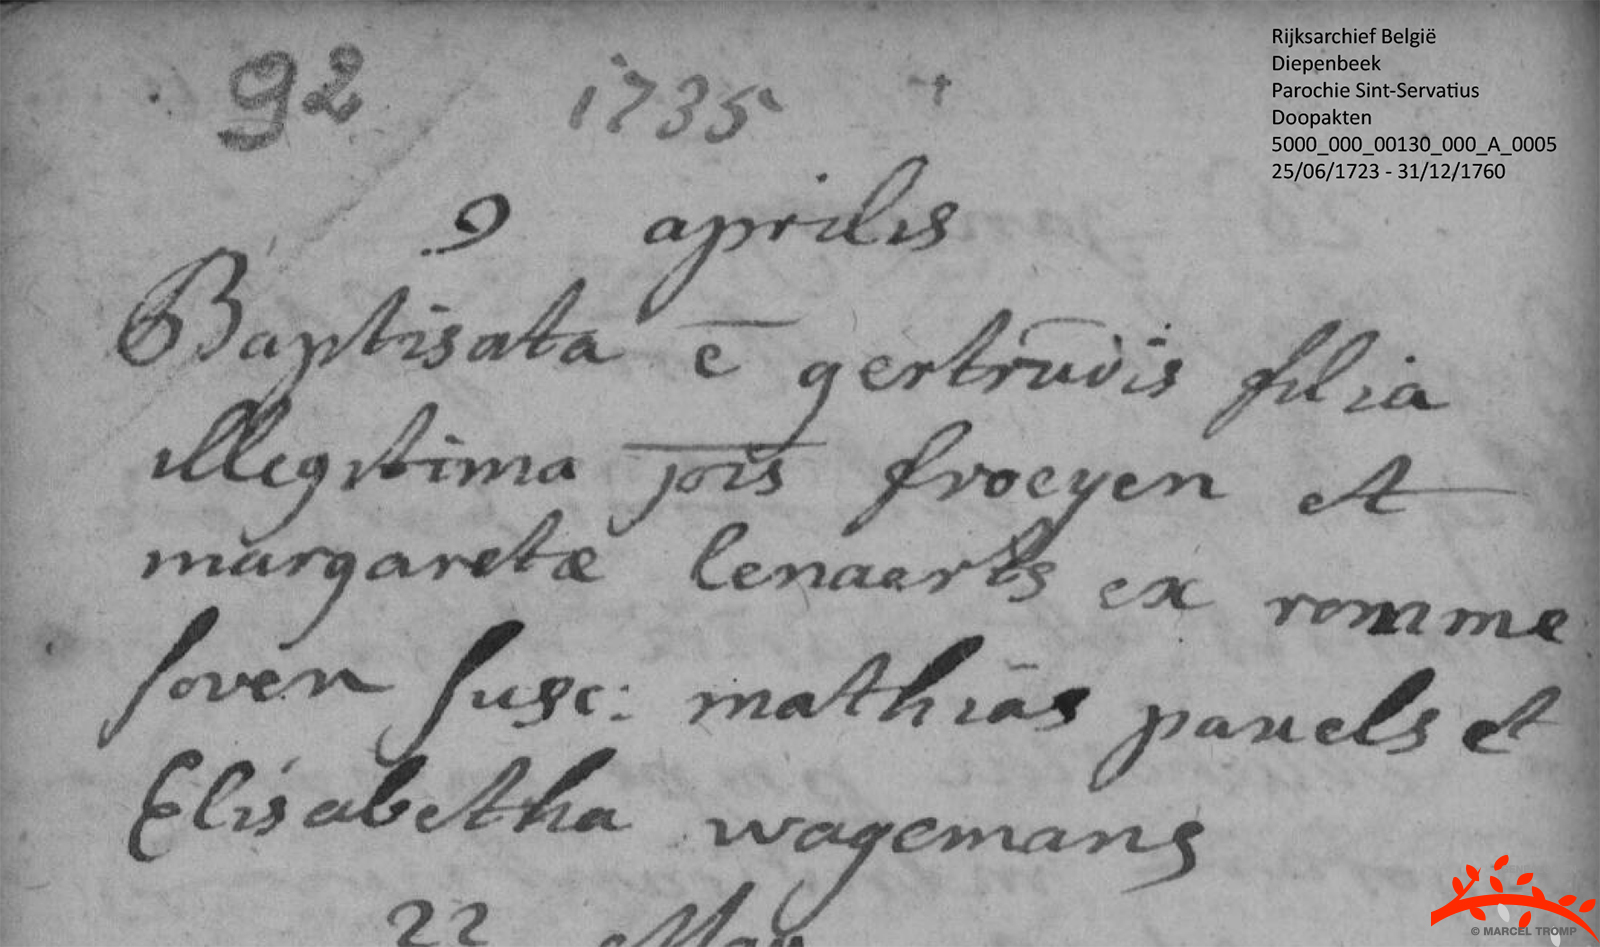 92 1735
Rijksarchief België
Diepenbeek
Parochie Sint-Servatius
Doopakten
5000_000_00130_000_A_0005
25/06/1723 - 31/12/1760
9 aprilis
Baptisata ē gertrudis filia
illegitima jois froeyen et
margaretæ lenaerts ex romme
soven susc: mathias pauels et
Elisabetha wagemans
22 May
© MARCEL TROMP